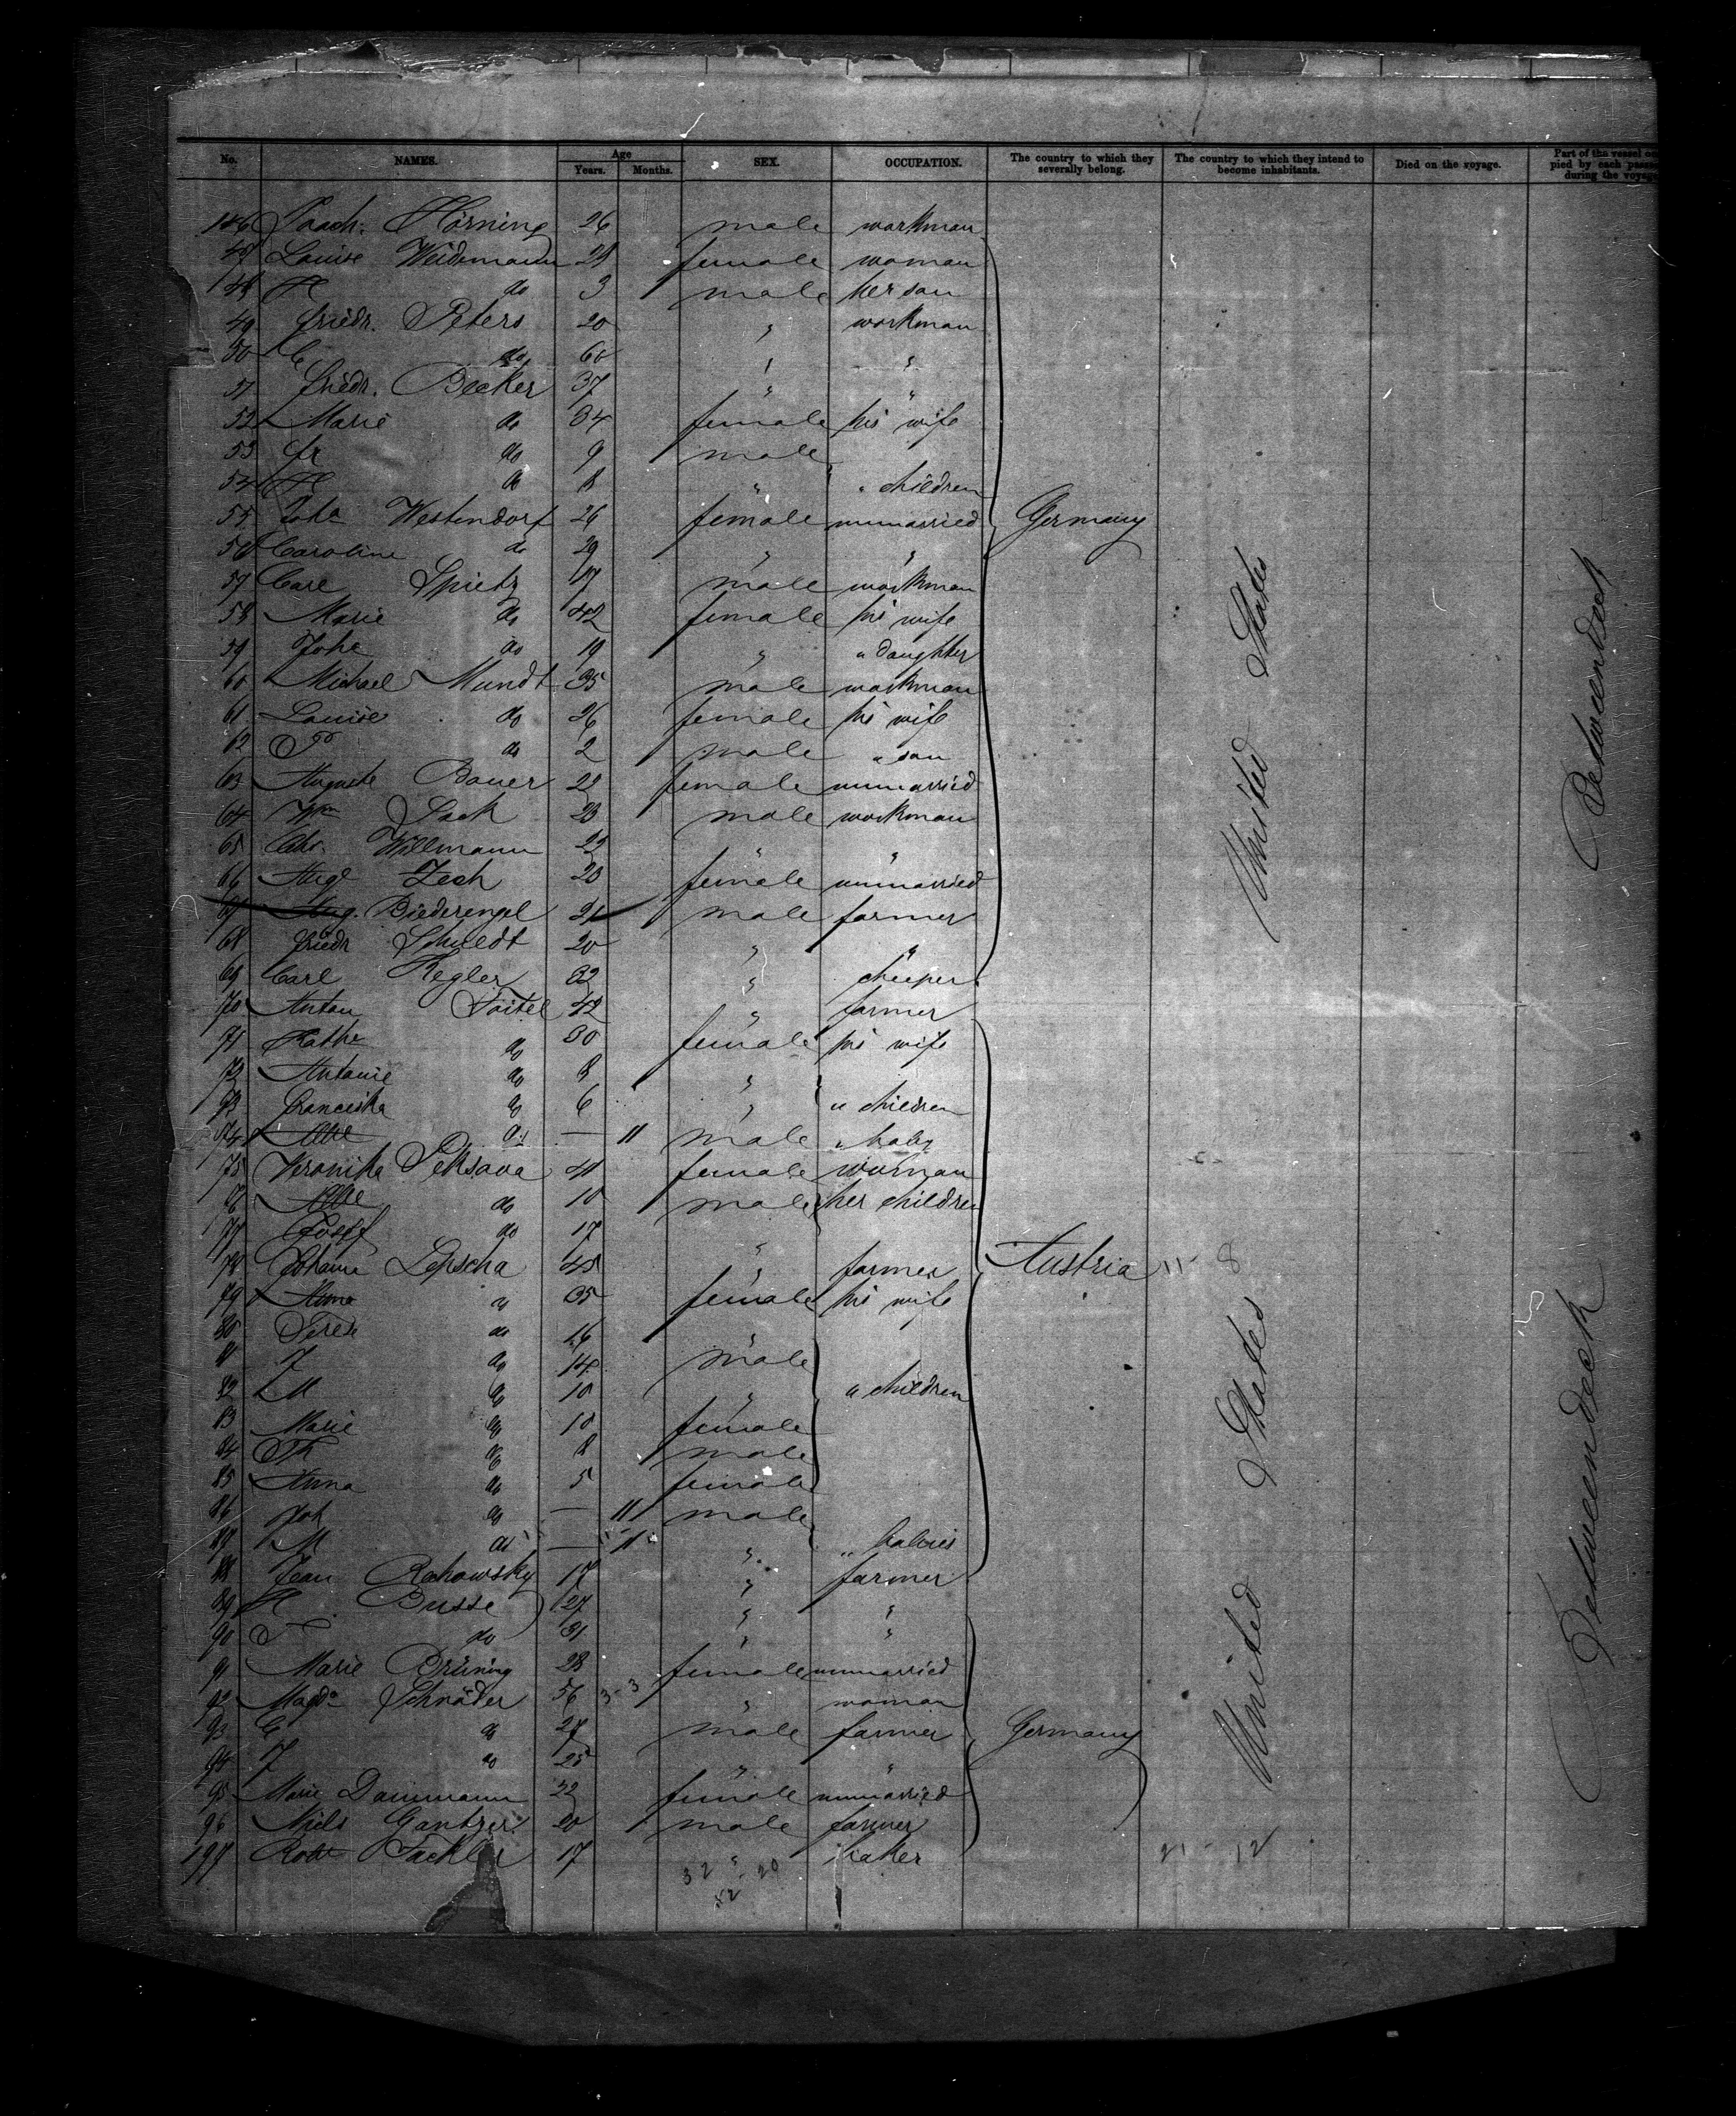 No. NAMES. Age Years. Months. SEX. OCCUPATION. The country to which they severally belong. The country to which they intend to become inhabitants. Died on the voyage. Part of the vessel during the voyage
146 Joach. Hörning 26 male workman
47 Louise Weidemann 28 female woman
48 H do 3 male her son
49 Friedr. Peters 20 " workman
50 C do 60 " "
51 Friedr. Becker 37 " "
52 Marie do 34 female his wife
53 Fr do 9 male
54 H do 8 " " children
55 Joha Westendorf 26 female unmarried Germany
56 Caroline do 29 " "
57 Carl Spietz 47 male workman
58 Marie do 42 female his wife
59 Joha do 19 " " daughter
60 Michael Mundt 35 male workman
61 Louise do 26 female his wife
62 do 2 male " son
63 Auguste Bauer 22 female unmarried
64 Wm Jack 23 male workman
65 Chr. Willmann 22 " "
66 Aug. Zech 23 female unmarried
67 Aug. Biederengel 21 male farmer
68 Friedr 20 " "
69 Carl Regler 32 "
70 Anton 42 " farmer
71 Kathe do 30 female his wife
72 Antonie do 8 "
73 Franciska do 6 " " children
74 do — 11 male " baby
75 Veronika 41 female woman
76 do 10 male her children
77 Josef do 17 "
78 Johann Lepscha 45 " farmer Austria 11 - 8
79 Anna " 35 female his wife
80 Teres do 16 "
81 J do 14 male
82 M do 10 " " children
83 Marie do 10 female
84 Th do 8 male
85 Anna do 5 female
86 Joh do — 11 male
87 M do — 11 " " babies
88 Jean Rohowsky 17 " farmer
89 H Busse 27 " "
90 do 31 " "
91 Marie Brüning 23 female unmarried
92 Magda Schröder 56 3-3 " woman
93 C do 27 male farmer Germany
94 J do 25 " "
95 Marie Dammann 22 female unmarried
96 Niels Gantzer 20 male farmer
197 Robt Tackler 17 " baker 21 - 12
32 - 20
52
United States
United States
Betweendeck
Betweendeck